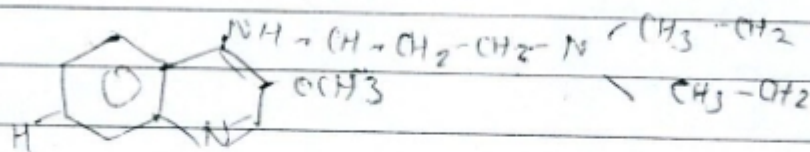 NH - CH - CH2 - CH2 - N CH3 - CH2
OCH3 CH3 - CH2
H N